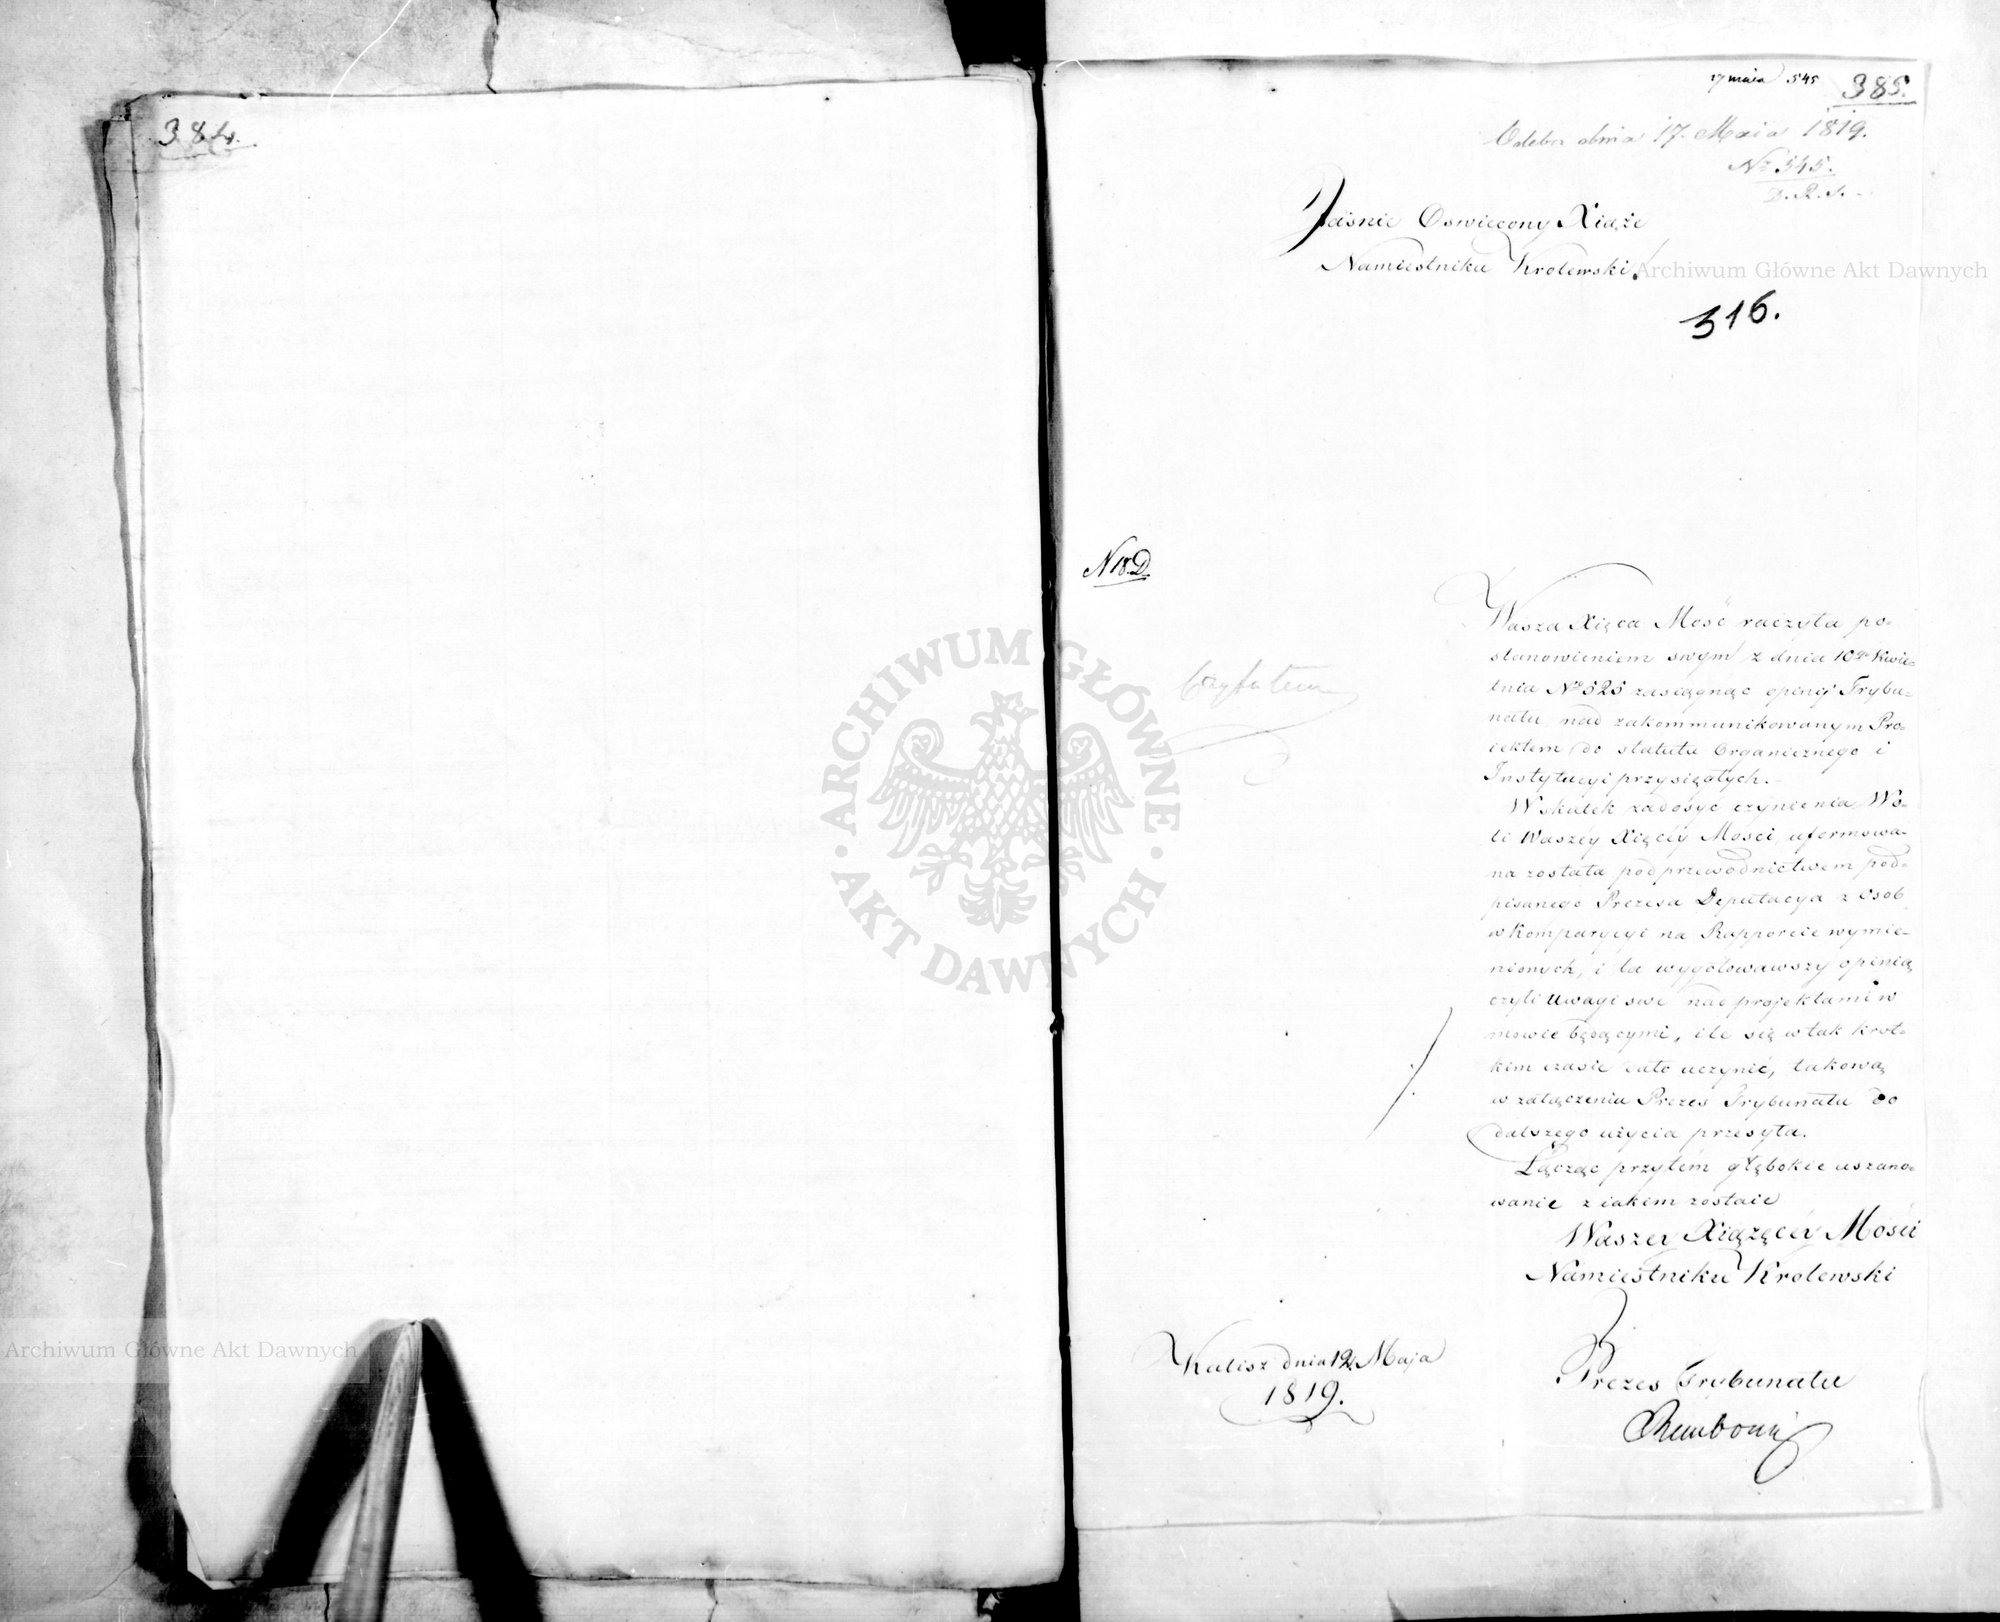 384.
17 maia 545
385.
Odebr. dnia 17. Maia 1819.
Nr 545.
D. R. S.
Jaśnie Oswiecony Xiąże
Namiestniku Krolewski!
316.
N 18. D.
Wasza Xięca Mość raczyła po-
stanowieniem swym z dnia 10go Kwie-
tnia No 525 zasiągnąć opinij Trybu-
nału, nad zakommunikowanym Pro-
iektem do statutu Organicznego i
Instytucyi przysięgłych.
W skutek zadosyć czynienia Wo-
li Waszéy Xięcéy Mosci, uformowa-
na została pod przewodnictwem pod-
pisanego Prezesa Deputacya z Osob
w Komparycyi na Rapporcie wymie-
nionych, i ta wygotowawszy opinią
czyli Uwagi swe nad projektami w
mowie będącymi, ile się w tak krot-
kim czasie dało uczynić, takową
w załączeniu Prezes Trybunału do
dalszego użycia przesyła.
Łącząc przytém głębokie uszano-
wanie z iakim zostaie
Waszey Xiążęcéy Mości
Namiestniku Krolewski
Kalisz dnia 12. Maja
1819.
Prezes Trybunału
Rembowski
Archiwum Główne Akt Dawnych
ARCHIWUM GŁÓWNE · AKT DAWNYCH ·
Archiwum Główne Akt Dawnych